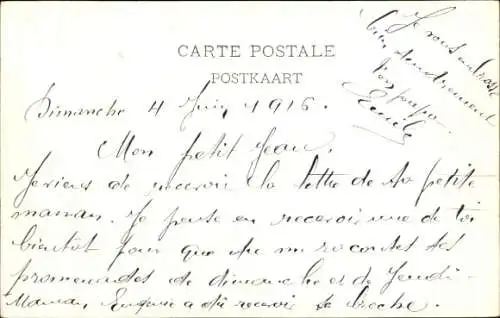 CARTE POSTALE
POSTKAART
Je vous embrasse
bien tendrement
Ton papa.
Emile
Dimanche 4 Juin 1916.
Mon petit Jean.
Je viens de recevoir la lettre de ta petite
maman. Je pense en recevoir une de toi
bientôt pour que tu me racontes tes
promenades de dimanche et de Jeudi.
Maman, Eugénie a dû recevoir sa broche.